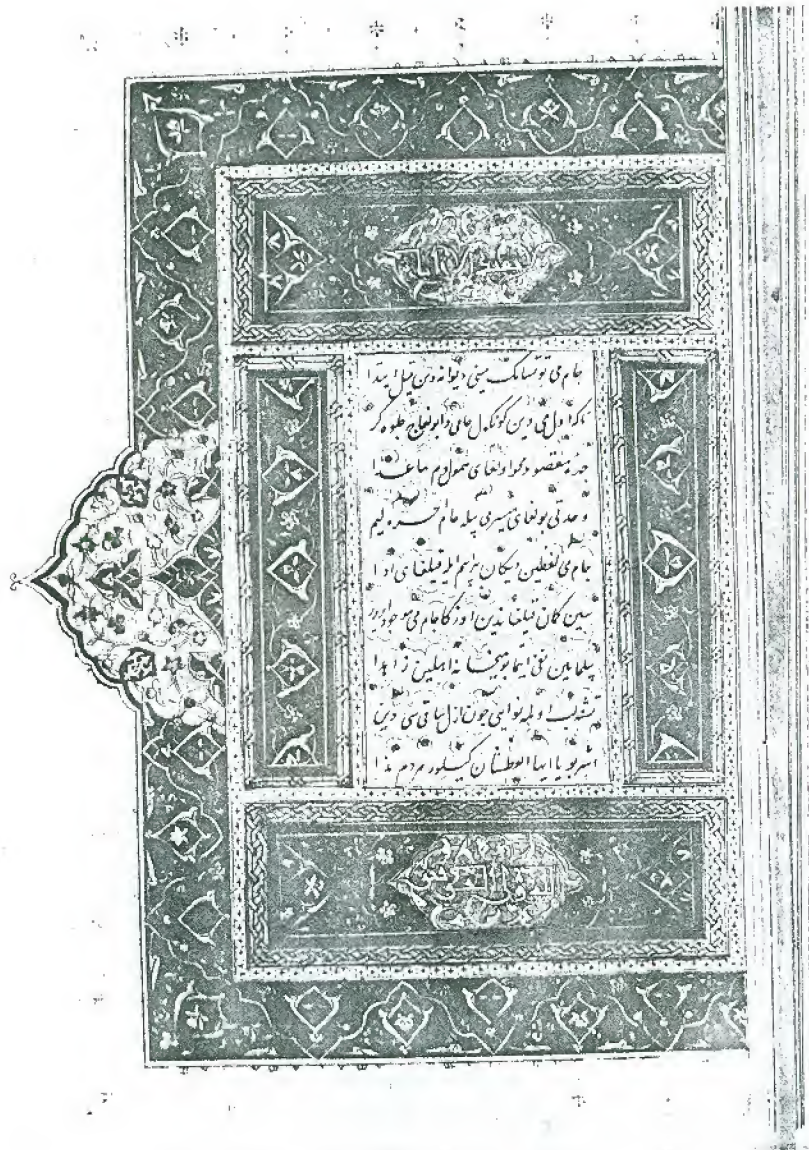 جام می توتسانک مینی دیوانه دین قیل ابتدا
تاکه اول می دین کونکول جامی دا بولغاج جلوه گر
چهرهٔ مقصود محو اولغای همول دم ماعدا
وحدتی بولغای میسر می بیله جام ایچره کیم
جام می لفظین دیکان بر اسم ایله قیلغای ادا
سین کمان قیلغاندین اوزکا جام می موجود ایرور
بیلمایین نفی ایتما بو میخانه اهلین زاهدا
تشنه لب اولمه نوایی چون ازل ساقی سی دین
اشربوا یا ایها العطشان کیلور هر دم ندا